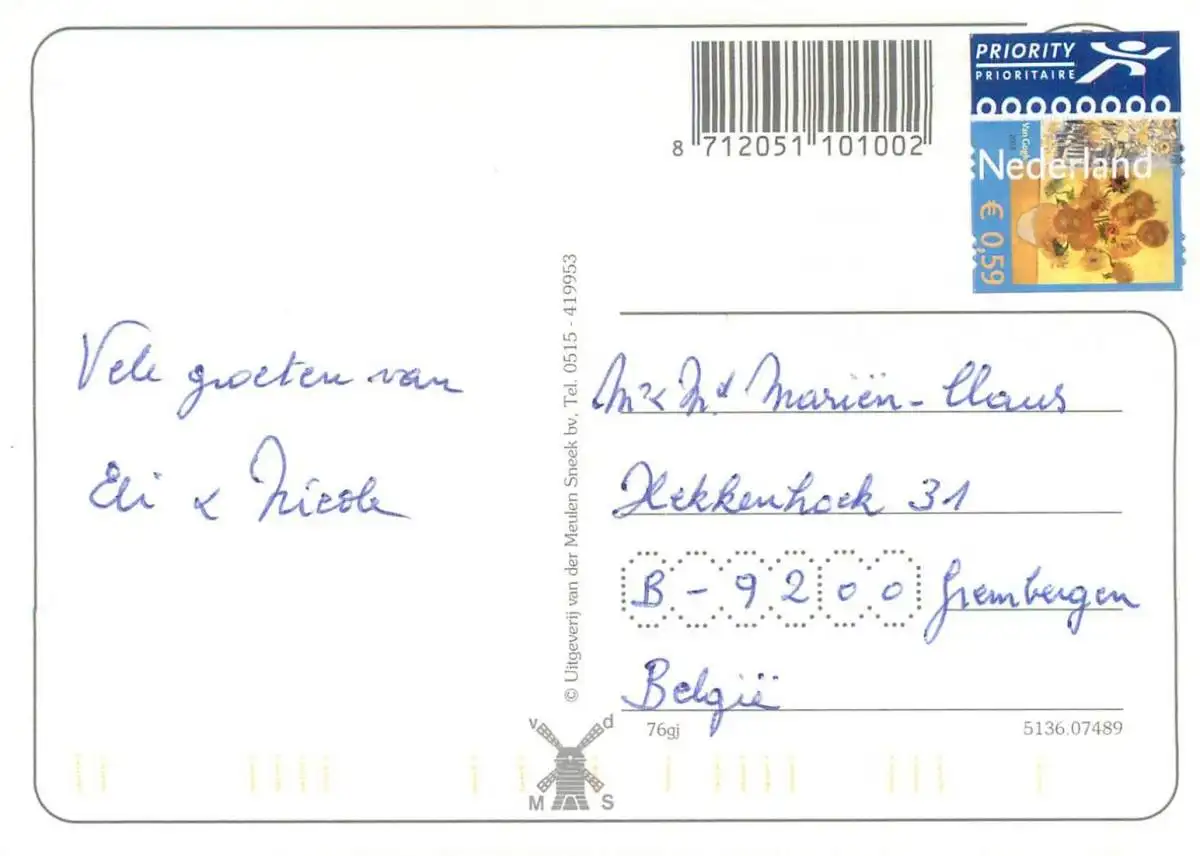 PRIORITY
PRIORITAIRE
Van Gogh
Nederland
€ 0,59
8 712051 101002
Vele groeten van
Eli & Nicole
© Uitgeverij van der Meulen Sneek bv, Tel. 0515 - 419953
Mr & Md Mariën - Claus
Hekkenhoek 31
B - 9200 Grembergen
België
76gj
5136.07489
v d
M S